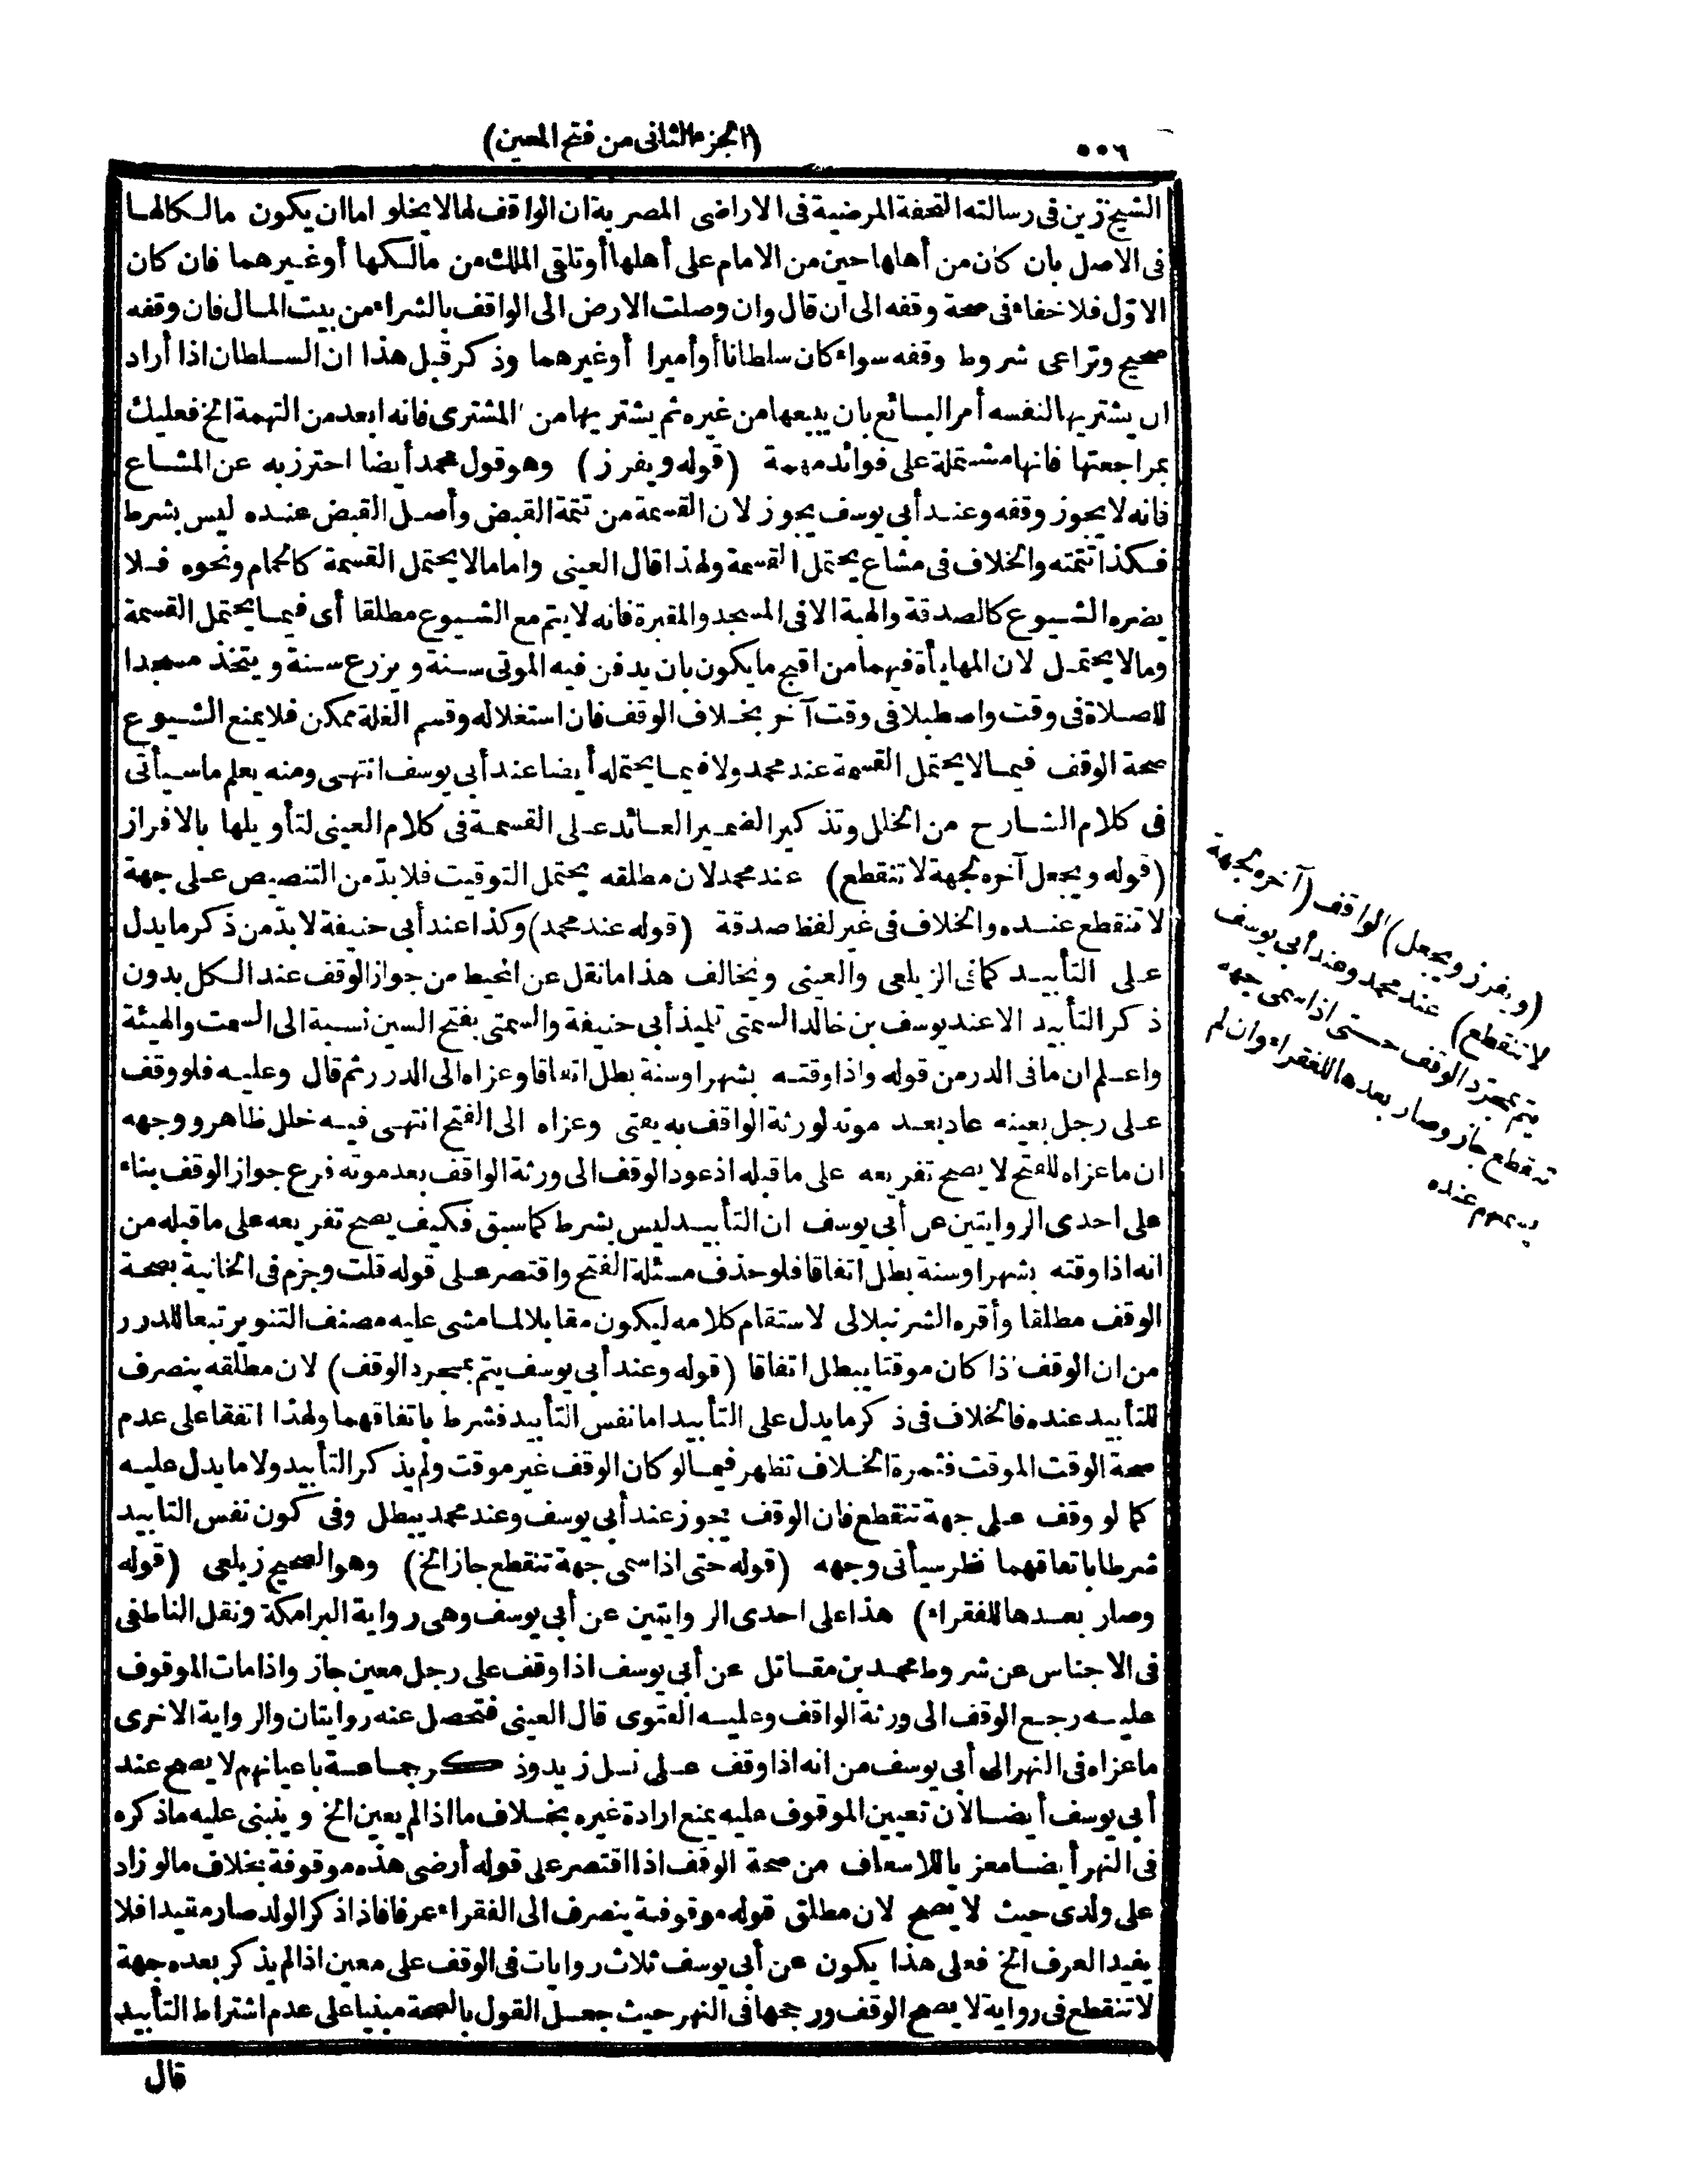 ٥٠٦
(الجزء الثانى من فتح المعين)
الشيخ زين فى رسالته التحفة المرضية فى الاراضى المصرية ان الواقف لها لا يخلو اما ان يكون مالكا لها
فى الاصل بان كان من أهلها حين من الامام على أهلها أو تلقى الملك من مالكها أو غيرهما فان كان
الاوّل فلا خفاء فى صحة وقفه الى ان قال وان وصلت الارض الى الواقف بالشراء من بيت المال فان وقفه
صحيح وتراعى شروط وقفه سواء كان سلطانا أو أميرا أو غيرهما وذكر قبل هذا ان السلطان اذا أراد
ان يشتريها لنفسه أمر البائع بان يبيعها من غيره ثم يشتريها من المشترى فانه ابعد من التهمة الخ فعليك
بمراجعتها فانها مشتملة على فوائد مهمة (قوله ويفرز) وهو قول محمد أيضا احترز به عن المشاع
فانه لا يجوز وقفه وعند أبى يوسف يجوز لان القسمة من تتمة القبض وأصل القبض عنده ليس بشرط
فكذا تتمته والخلاف فى مشاع يحتمل القسمة ولهذا قال العينى واما ما لا يحتمل القسمة كالحمام ونحوه فلا
يضره الشيوع كالصدقة والهبة الا فى المسجد والمقبرة فانه لا يتم مع الشيوع مطلقا أى فيما يحتمل القسمة
وما لا يحتمل لان المهايأة فيهما من اقبح ما يكون بان يدفن فيه الموتى سنة ويزرع سنة ويتخذ مسجدا
للصلاة فى وقت واصطبلا فى وقت آخر بخلاف الوقف فان استغلاله وقسم الغلة ممكن فلا يمنع الشيوع
صحة الوقف فيما لا يحتمل القسمة عند محمد ولا فيما يحتمله أيضا عند أبى يوسف انتهى ومنه يعلم ما سيأتى
فى كلام الشارح من الخلل وتذكير الضمير العائد على القسمة فى كلام العينى لتأويلها بالافراز
(قوله ويجعل آخره لجهة لا تنقطع) عند محمد لان مطلقه يحتمل التوقيت فلا بدّ من التنصيص على جهة
لا تنقطع عنده والخلاف فى غير لفظ صدقة (قوله عند محمد) وكذا عند أبى حنيفة لا بدّ من ذكر ما يدل
على التأبيد كما فى الزيلعى والعينى ويخالف هذا ما نقل عن المحيط من جواز الوقف عند الكل بدون
ذكر التأبيد الا عند يوسف بن خالد السمتى تلميذ أبى حنيفة والسمتى بفتح السين نسبة الى السمت والهيئة
واعلم ان ما فى الدر من قوله واذا وقته بشهر او سنة بطل اتفاقا وعزاه الى الدرر ثم قال وعليه فلو وقف
على رجل بعينه عاد بعد موته لورثة الواقف به يفتى وعزاه الى الفتح انتهى فيه خلل ظاهر ووجهه
ان ما عزاه للفتح لا يصح تفريعه على ما قبله اذ عود الوقف الى ورثة الواقف بعد موته فرع جواز الوقف بناء
على احدى الروايتين عن أبى يوسف ان التأبيد ليس بشرط كما سبق فكيف يصح تفريعه على ما قبله من
انه اذا وقته بشهر او سنة بطل اتفاقا فلو حذف مسئلة الفتح واقتصر على قوله قلت وجزم فى الخانية بصحة
الوقف مطلقا وأقره الشرنبلالى لاستقام كلامه ليكون مقابلا لما مشى عليه مصنف التنوير تبعا للدرر
من ان الوقف اذا كان موقتا يبطل اتفاقا (قوله وعند أبى يوسف يتم بمجرد الوقف) لان مطلقه ينصرف
للتأبيد عنده فالخلاف فى ذكر ما يدل على التأبيد اما نفس التأبيد فشرط باتفاقهما ولهذا اتفقا على عدم
صحة الوقت الموقت فثمرة الخلاف تظهر فيما لو كان الوقف غير موقت ولم يذكر التأبيد ولا ما يدل عليه
كما لو وقف على جهة تنقطع فان الوقف يجوز عند أبى يوسف وعند محمد يبطل وفى كون نفس التابيد
شرطا باتفاقهما نظر سيأتى وجهه (قوله حتى اذا سمى جهة تنقطع جاز الخ) وهو الصحيح زيلعى (قوله
وصار بعدها للفقراء) هذا على احدى الروايتين عن أبى يوسف وهى رواية البرامكة ونقل الناطفى
فى الاجناس عن شروط محمد بن مقاتل عن أبى يوسف اذا وقف على رجل معين جاز واذا مات الموقوف
عليه رجع الوقف الى ورثة الواقف وعليه الفتوى قال العينى فتحصل عنه روايتان والرواية الاخرى
ما عزاه فى النهر الى أبى يوسف من انه اذا وقف على نسل زيد وذكر جماعة باعيانهم لا يصح عند
أبى يوسف أيضا لأن تعيين الموقوف عليه يمنع ارادة غيره بخلاف ما اذا لم يعين الخ وينبنى عليه ما ذكره
فى النهر أيضا معزيا للاسعاف من صحة الوقف اذا اقتصر على قوله أرضى هذه موقوفة بخلاف ما لو زاد
على ولدى حيث لا يصح لان مطلق قوله موقوفة ينصرف الى الفقراء عرفا فاذا ذكر الولد صار مقيدا فلا
يفيد العرف الخ فعلى هذا يكون عن أبى يوسف ثلاث روايات فى الوقف على معين اذا لم يذكر بعده جهة
لا تنقطع فى رواية لا يصح الوقف ورجحها فى النهر حيث جعل القول بالصحة مبنيا على عدم اشتراط التأبيد
قال
(ويفرز ويجعل) الواقف (آخره لجهة
لا تنقطع) عند محمد وعند أبى يوسف
يتم بمجرّد الوقف حتى اذا سمى جهة
تنقطع جاز وصار بعدها للفقراء وان لم
يسمهم عنده